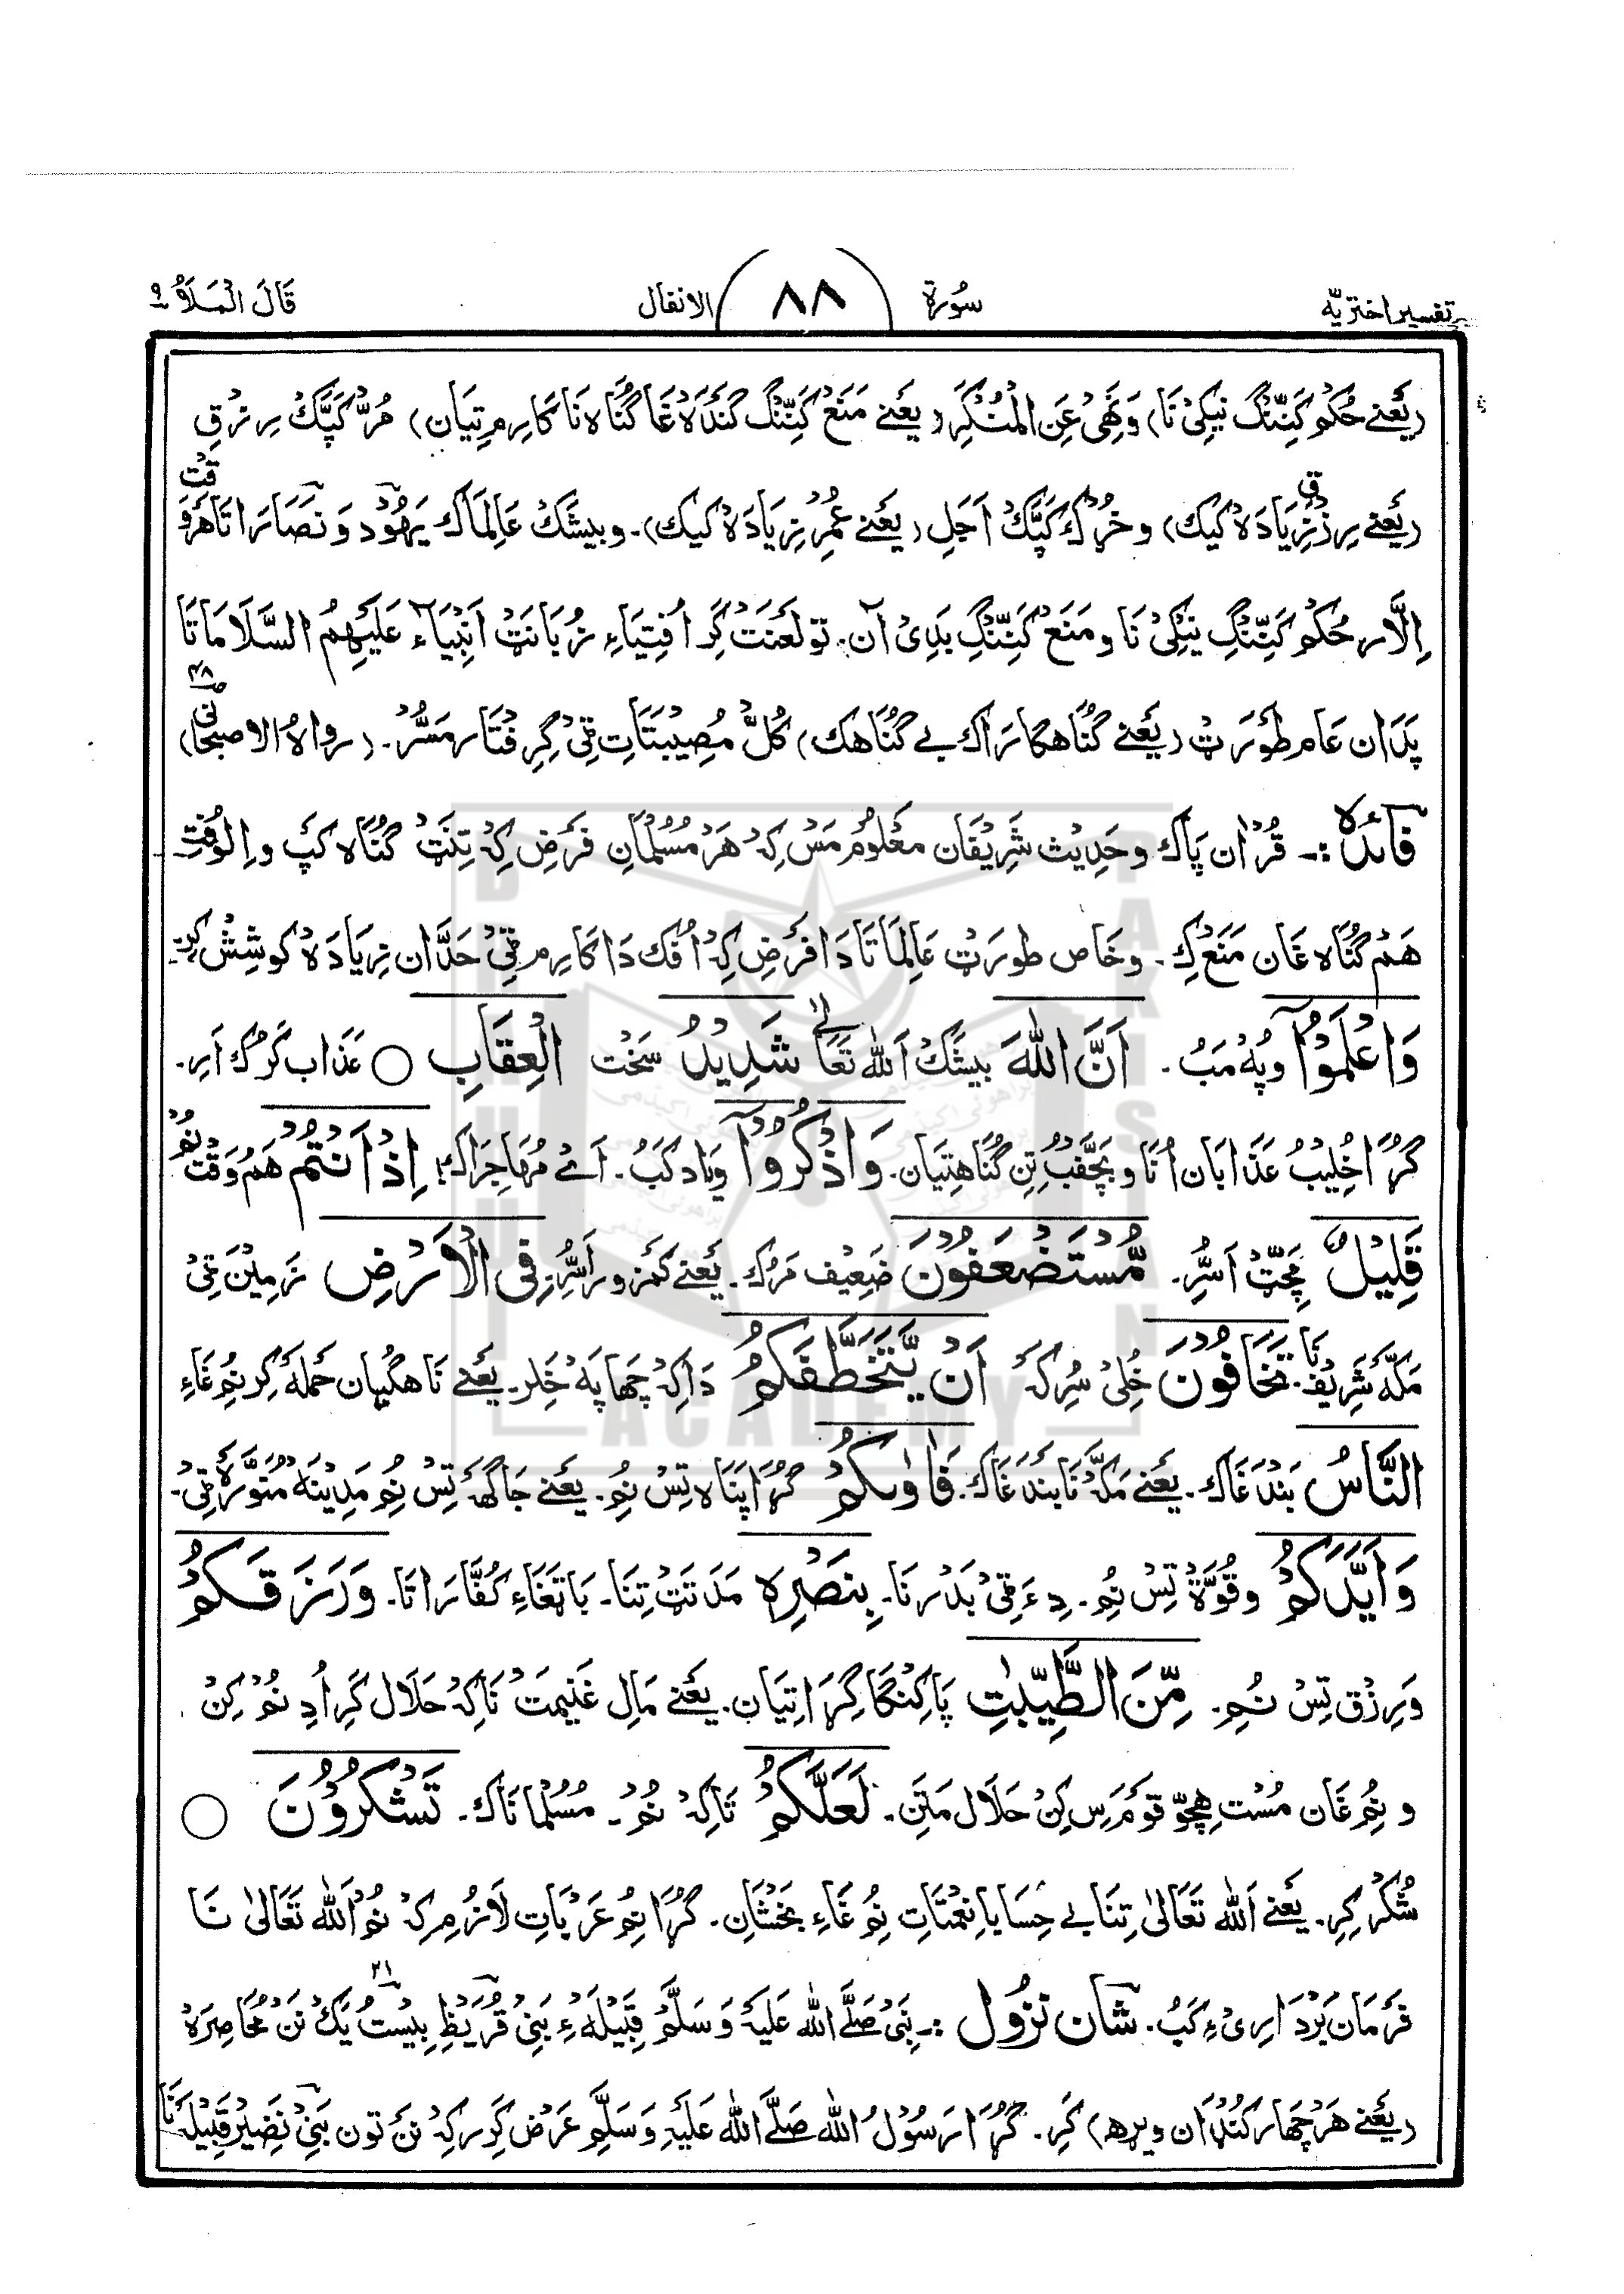 تفسیر اختریّه سُورة ٨٨ الانفال قَالَ الْمَلَاُ ٩
(یَعْنے حُکْم کَنِّنْگ نیکِیْ نَا) وَنَهْی عَنِ الْمُنْکَرِ (یَعْنے مَنَعْ کَنِّنْگ گَنْدَهْ غَا گُنَاه نَا کَارِم تِیَان) مُرّ کَپَّکْ رِزْقِ
(یَعْنے رِزْقِ زِیَادَهْ کیک) و خُرُک کَپَّکْ اَجَلِ (یَعْنے عُمْرِ زِیَادَهْ کیک). و بیشَکْ عَالِمَاک یَهُوْد وَ نَصَارَا تَا هَرْوَقْت
اِلَّار حُکْم کَنِّنْگِ نیکِیْ نَا و مَنَعْ کَنِّنْگِ بَدِیْ آن. تو لَعْنَتْ کَرِ اُفْتِیَاءِ زُبَانَتْ اَنْبِیَاء عَلَیْهِمُ السَّلَامَاتَا
پَدَان عَام طَوْرَتْ (یَعْنے گُنَاهگارَاک بے گُنَاهک) کُلّ مُصِیْبَتَاتِ ٹِیْ گِرِفْتَار مَسُّرْ. (رواهُ الاصبحانی) ٣٨
فَائدَه :- قُرْاٰن پَاک و حَدِیْث شَرِیْفَان مَعْلُوْم مَسْ کِهْ هَرْ مُسْلمَان فَرْض کِهْ تِنَتْ گُنَاه کپ و اِلوْفْتِ
هَمْ گُنَاه غَان مَنَعْ کِ. و خَاص طورَتْ عَالِمَاتَا دَا فَرْض کِهْ اُفْک دَا کَارِم ٹِیْ حَدَّان زِیَادَهْ کوشِشْ کِر.
وَاعْلَمُوْٓا و پُهْ مَبُ. اَنَّ اللّٰهَ بیشَکْ اَللّٰه تَعَالٰے شَدِیْدُ سَخْت الْعِقَابِ ○ عَذَاب کَرُک اَرِ.
گُڑَا خُلِیْبُ عَذَابَان اُنَا و بَچَّفْبُ تِنِ گُنَاهتِیَان. وَاذْکُرُوْٓا وَیاد کَبُ. اَے مُهَاجِرَاک! اِذْ اَنْتُمْ هَمْ وَقْتْ نُمْ
قَلِیْلٌ مَچِّتْ اَسُّرِ. مُّسْتَضْعَفُوْنَ ضَعِیْف مَرُک. یَعْنے کَمْزور اَسُّرِ. فِی الْاَرْضِ زَمِیْن ٹِیْ
مَکَّهْ شَرِیْف نَا. تَخَافُوْنَ خُلِیْ سُرِ کهْ اَنْ یَّتَخَطَّفَکُمُ دَاکِهْ چَهاپَهْ خَلر. یَعْنے نَاهگہَان حَمْلَهْ کِر نُمْ غَاءِ
النَّاسُ بَنْدَغَاک. یَعْنے مَکَّهْ نَا بَنْدَغَاک. فَاٰوٰىکُمْ گُڑَا پَنَاه تِسْ نُمِ. یَعْنے جَاگَهْ تِسْ نُمِ مَدِیْنَهْ مُنَوَّرَهْ ٹِیْ.
وَاَیَّدَکُمْ و قُوَّةْ تِسْ نُمِ. دِءِ ٹِیْ بَدْر نَا. بِنَصْرِهٖ مَدَتَتْ تِنَا. بَاتْغَاءِ کُفَّارَاتَا. وَرَزَقَکُمْ
وَ رِزْق تِسْ نُمِ. مِّنَ الطَّیِّبٰتِ پَاکِنْگَا گِڑَاتِیَان. یَعْنے مَالِ غَنِیْمَتْ نَاکِهْ حَلَال کَرِ اُدِ نُمْ کِنْ
و نُمْ غَان مُسْت هِچُّو قَومَرس کِنْ حَلَال مَتَنِ. لَعَلَّکُمْ تَاکِهْ نُمْ. مُسُلْمَانَاک. تَشْکُرُوْنَ ○
شُکُرْ کِرِ. یَعْنے اَللّٰه تَعَالیٰ تِنَا بے حِسَابا نِعْمَتَاتِ نُمْ غَاءِ بَخْشَان. گُڑَا نُمْ غَرْیَاتِ لَازُمِ کِهْ نُمْ اَللّٰه تَعَالیٰ نَا
فَرْمَان بَرْدَارِیْ ءِ کَبُ. شَان نُزُول :- نَبِیْ صَلَّے اللّٰه عَلَیْهِ وَسَلَّمْ قِبِیْلَهءِ بَنِیْ قُرَیْظِ بِیْسْت یَکْ نَنْ مُحَاصِرَهْ ٢١
(یَعْنے هَرْ چهَار کُنْڈَان ویڑھ) کَرِ. گُڑَا رَسُوْلُ اللّٰه صَلَّے اللّٰه عَلَیْهِ وَسَلَّمِ عَرَض کَرِر کِهْ نَنْ تون بَنِیْ نَضِیْر قَبِیْلَهْ نَا
BRAHUI ACADEMY PAKISTAN